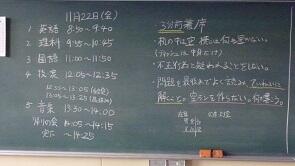 11月22日(金)
1 英語 8:50~9:40
2 理科 9:55~10:45
3 国語 11:00~11:50
4 技家 12:05~12:35
12:35~13:05
13:05~13:25
5 音楽 13:30~14:00
帰りの会 14:05~14:15
完下 ~14:25
3分前着席
・机の中は空 横には何も置かない。
・不正行為と疑われることをしない。
・問題を最後までよく読み、ていねいに
解くこと。空らんを作らない。何か書こう。